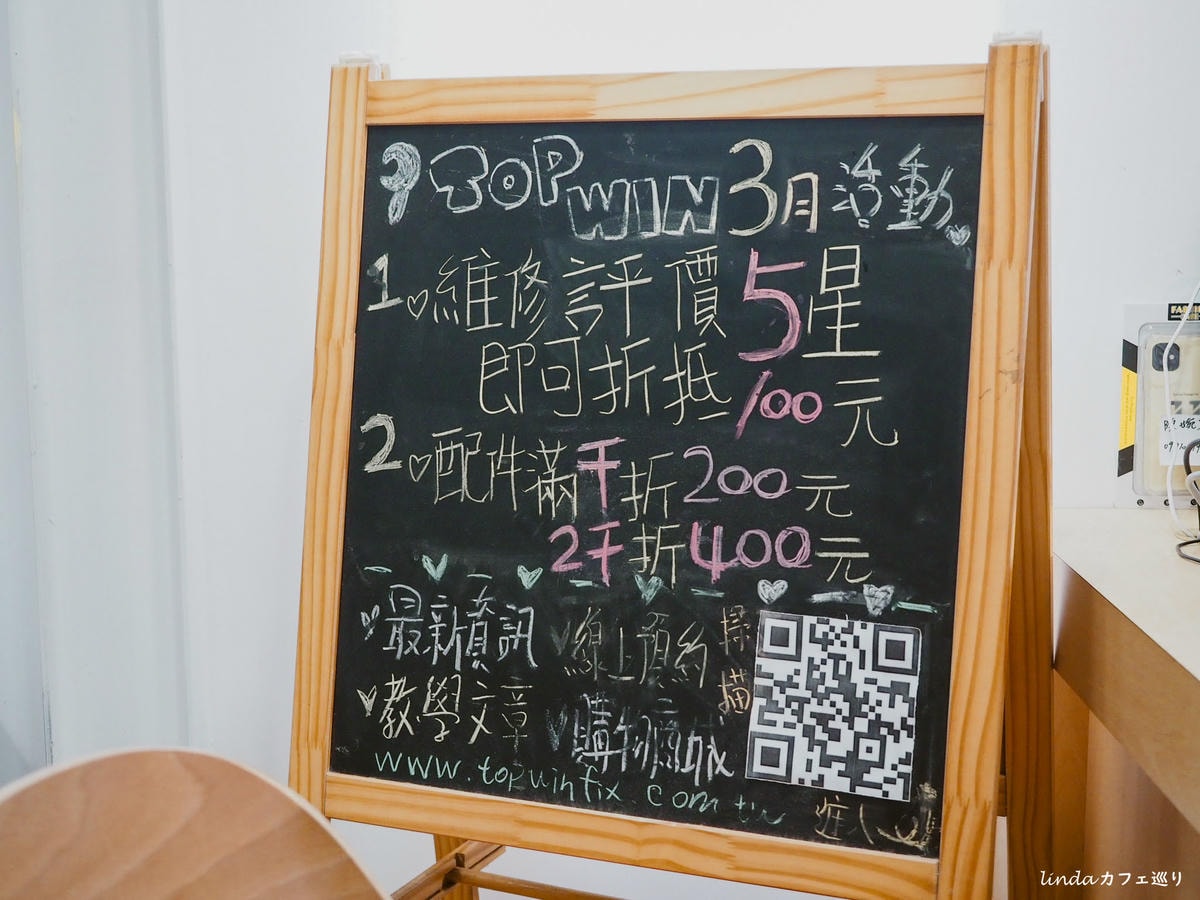 TOPWIN 3月活動
1. 維修評價5星
即可折抵100元
2. 配件滿千折200元
2千折400元
最新資訊 線上預約 掃描
教學文章 購物商城
www.topwinfix.com.tw
lindaカフェ巡り